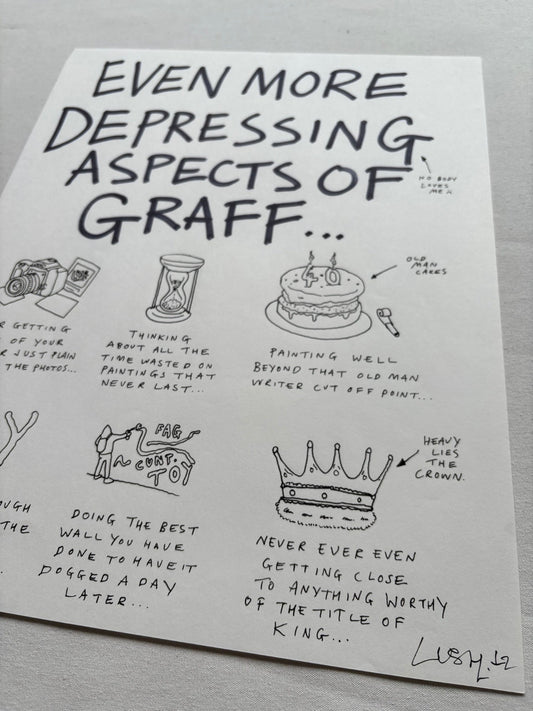 EVEN MORE
DEPRESSING
ASPECTS OF
GRAFF...
NO BODY
LOVES
ME
R GETTING
OF YOUR
R JUST PLAIN
THE PHOTOS...
THINKING
ABOUT ALL THE
TIME WASTED ON
PAINTINGS THAT
NEVER LAST...
4.0
OLD
MAN
CAKES
PAINTING WELL
BEYOND THAT OLD MAN
WRITER CUT OFF POINT...
Y
OUGH
THE
FAG
CUNT.
TOY
DOING THE BEST
WALL YOU HAVE
DONE TO HAVE IT
DOGGED A DAY
LATER...
HEAVY
LIES
THE
CROWN.
NEVER EVER EVEN
GETTING CLOSE
TO ANYTHING WORTHY
OF THE TITLE OF
KING...
LUSH.12